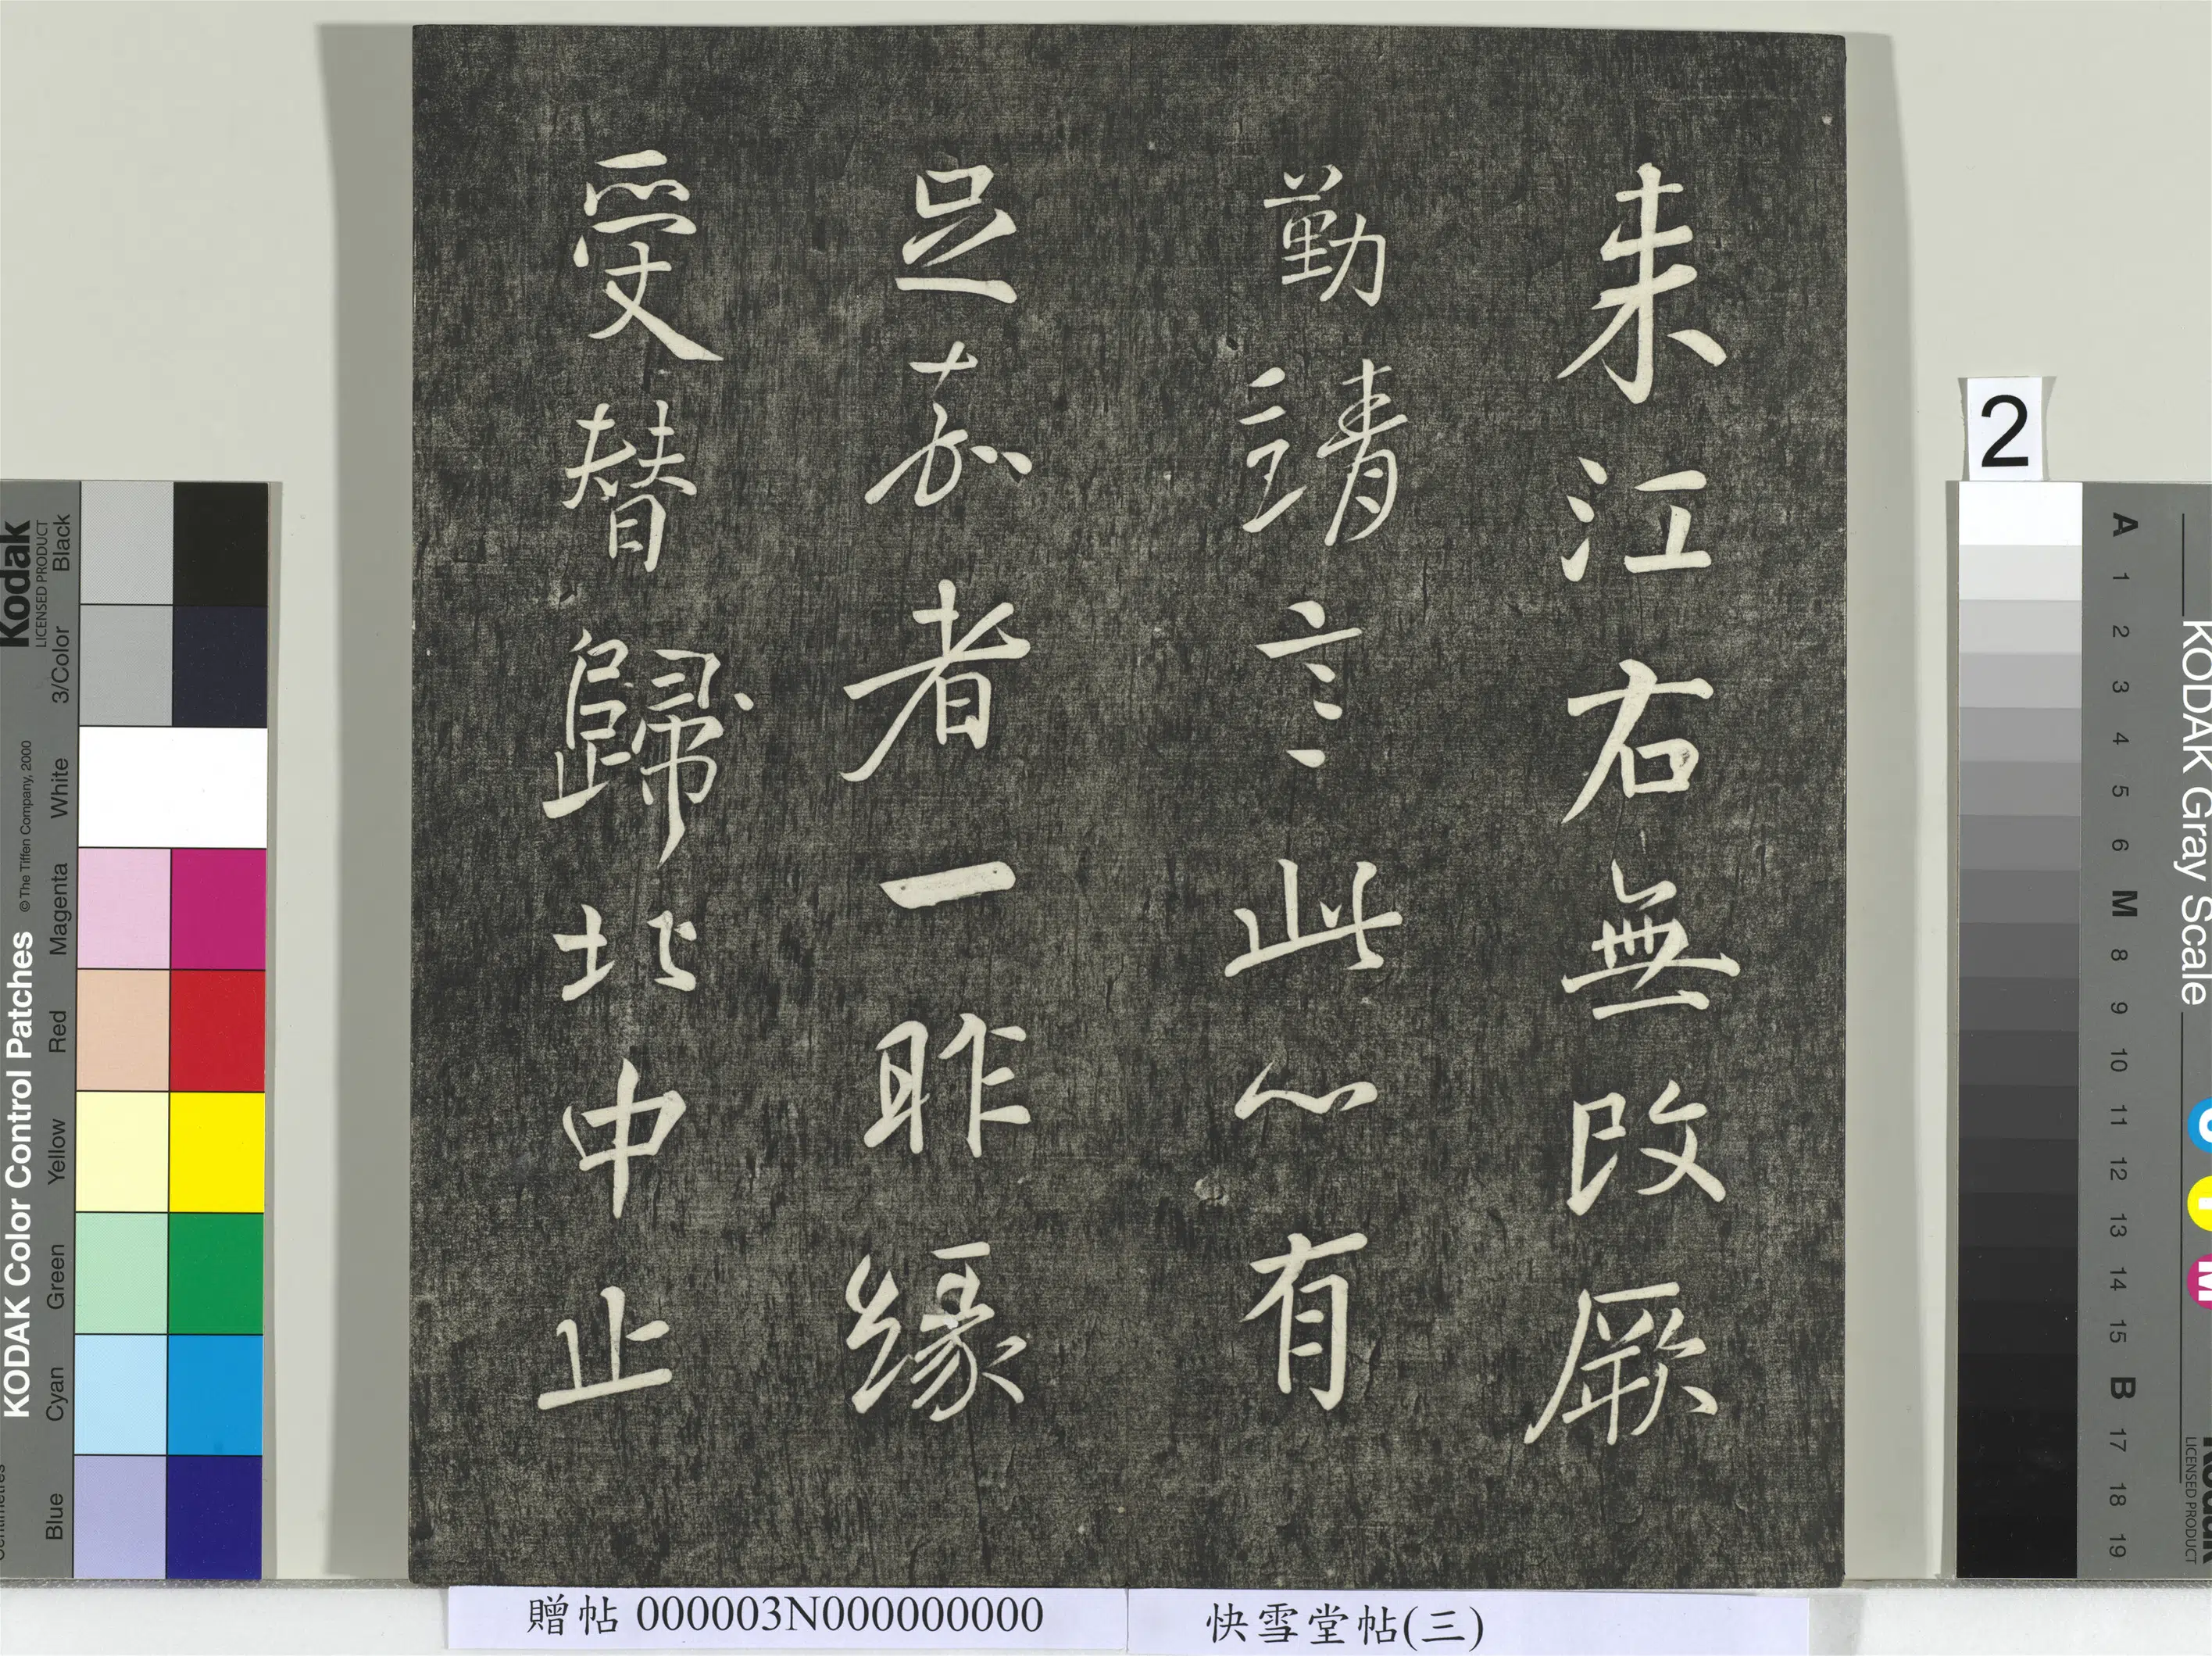 来江右無改厥
勤靖言此心有
足嘉者一昨緣
受替歸北中止
贈帖 000003N000000000
快雪堂帖(三)
2
Kodak
LICENSED PRODUCT
KODAK Color Control Patches
© The Tiffen Company, 2000
Black
3/Color
White
Magenta
Red
Yellow
Green
Cyan
Blue
KODAK Gray Scale
A 1 2 3 4 5 6 M 8 9 10 11 12 13 14 15 B 17 18 19
C
Y
M
LICENSED PRODUCT